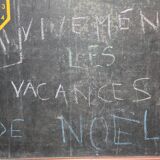 VIVEMENT
LES
VACANCES
DE NOËL